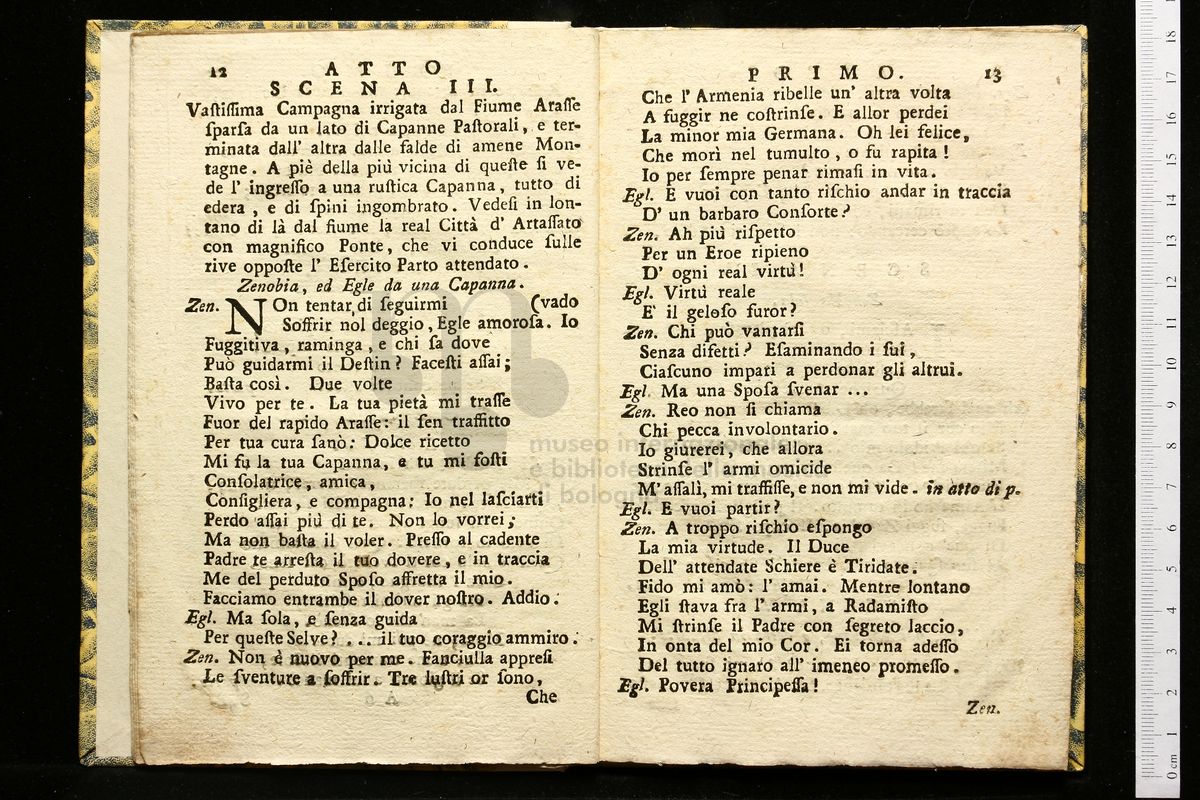 12 ATTO
SCENA III.
Vaſtiſſima Campagna irrigata dal Fiume Araſſe
ſparſa da un lato di Capanne Paſtorali, e ter-
minata dall' altra dalle falde di amene Mon-
tagne. A piè della più vicina di queſte ſi ve-
de l' ingreſſo a una ruſtica Capanna, tutto di
edera, e di ſpini ingombrato. Vedeſi in lon-
tano di là dal fiume la real Città d' Artaſſato
con magnifico Ponte, che vi conduce ſulle
rive oppoſte l' Eſercito Parto attendato.
Zenobia, ed Egle da una Capanna.
Zen. NOn tentar di ſeguirmi (vado
Soffrir nol deggio, Egle amoroſa. Io
Fuggitiva, raminga, e chi ſa dove
Può guidarmi il Deſtin? Faceſti aſſai;
Baſta così. Due volte
Vivo per te. La tua pietà mi traſſe
Fuor del rapido Araſſe: il ſen traffitto
Per tua cura ſanò: Dolce ricetto
Mi fu la tua Capanna, e tu mi foſti
Conſolatrice, amica,
Conſigliera, e compagna: Io nel laſciarti
Perdo aſſai più di te. Non lo vorrei;
Ma non baſta il voler. Preſſo al cadente
Padre te arreſta il tuo dovere, e in traccia
Me del perduto Spoſo affretta il mio.
Facciamo entrambe il dover noſtro. Addio.
Egl. Ma ſola, e ſenza guida
Per queſte Selve? ... il tuo coraggio ammiro.
Zen. Non è nuovo per me. Fanciulla appreſi
Le ſventure a ſoffrir. Tre luſtri or ſono,
Che
PRIMO. 13
Che l' Armenia ribelle un' altra volta
A fuggir ne coſtrinſe. E allor perdei
La minor mia Germana. Oh lei felice,
Che morì nel tumulto, o fu rapita!
Io per ſempre penar rimaſi in vita.
Egl. E vuoi con tanto riſchio andar in traccia
D' un barbaro Conſorte?
Zen. Ah più riſpetto
Per un Eroe ripieno
D' ogni real virtù!
Egl. Virtù reale
E' il geloſo furor?
Zen. Chi può vantarſi
Senza difetti? Eſaminando i ſui,
Ciaſcuno impari a perdonar gli altrui.
Egl. Ma una Spoſa ſvenar ...
Zen. Reo non ſi chiama
Chi pecca involontario.
Io giurerei, che allora
Strinſe l' armi omicide
M' aſſalì, mi traffiſſe, e non mi vide. in atto di p.
Egl. E vuoi partir?
Zen. A troppo riſchio eſpongo
La mia virtude. Il Duce
Dell' attendate Schiere è Tiridate.
Fido mi amò: l' amai. Mentre lontano
Egli ſtava fra l' armi, a Radamiſto
Mi ſtrinſe il Padre con ſegreto laccio,
In onta del mio Cor. Ei torna adeſſo
Del tutto ignaro all' imeneo promeſſo.
Egl. Povera Principeſſa!
Zen.
museo internazionale
e biblioteca della mu
di bologna
0 cm 1 2 3 4 5 6 7 8 9 10 11 12 13 14 15 16 17 18